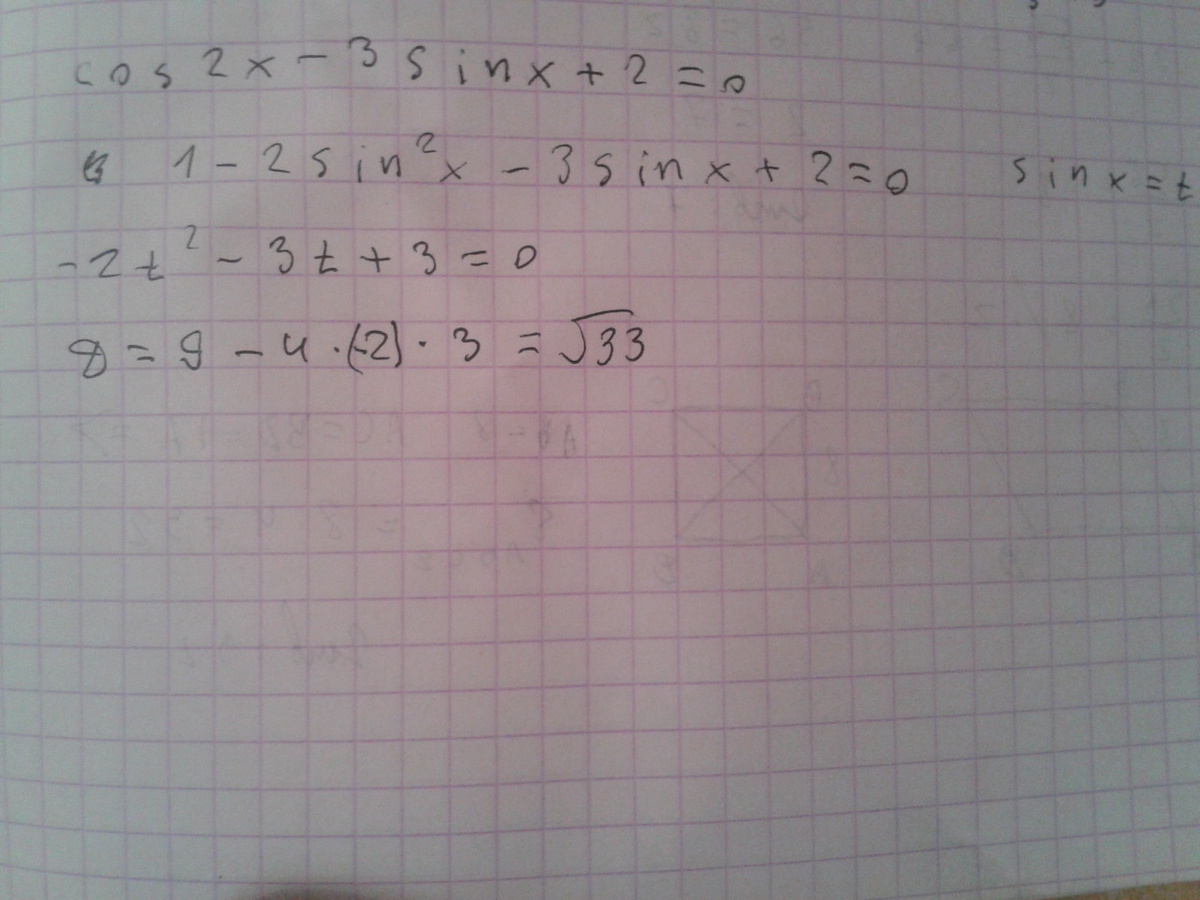 cos 2x - 3 sin x + 2 = 0
1 - 2 sin²x - 3 sin x + 2 = 0 sin x = t
-2t² - 3t + 3 = 0
8 = 9 - 4 · (-2) · 3 = √33